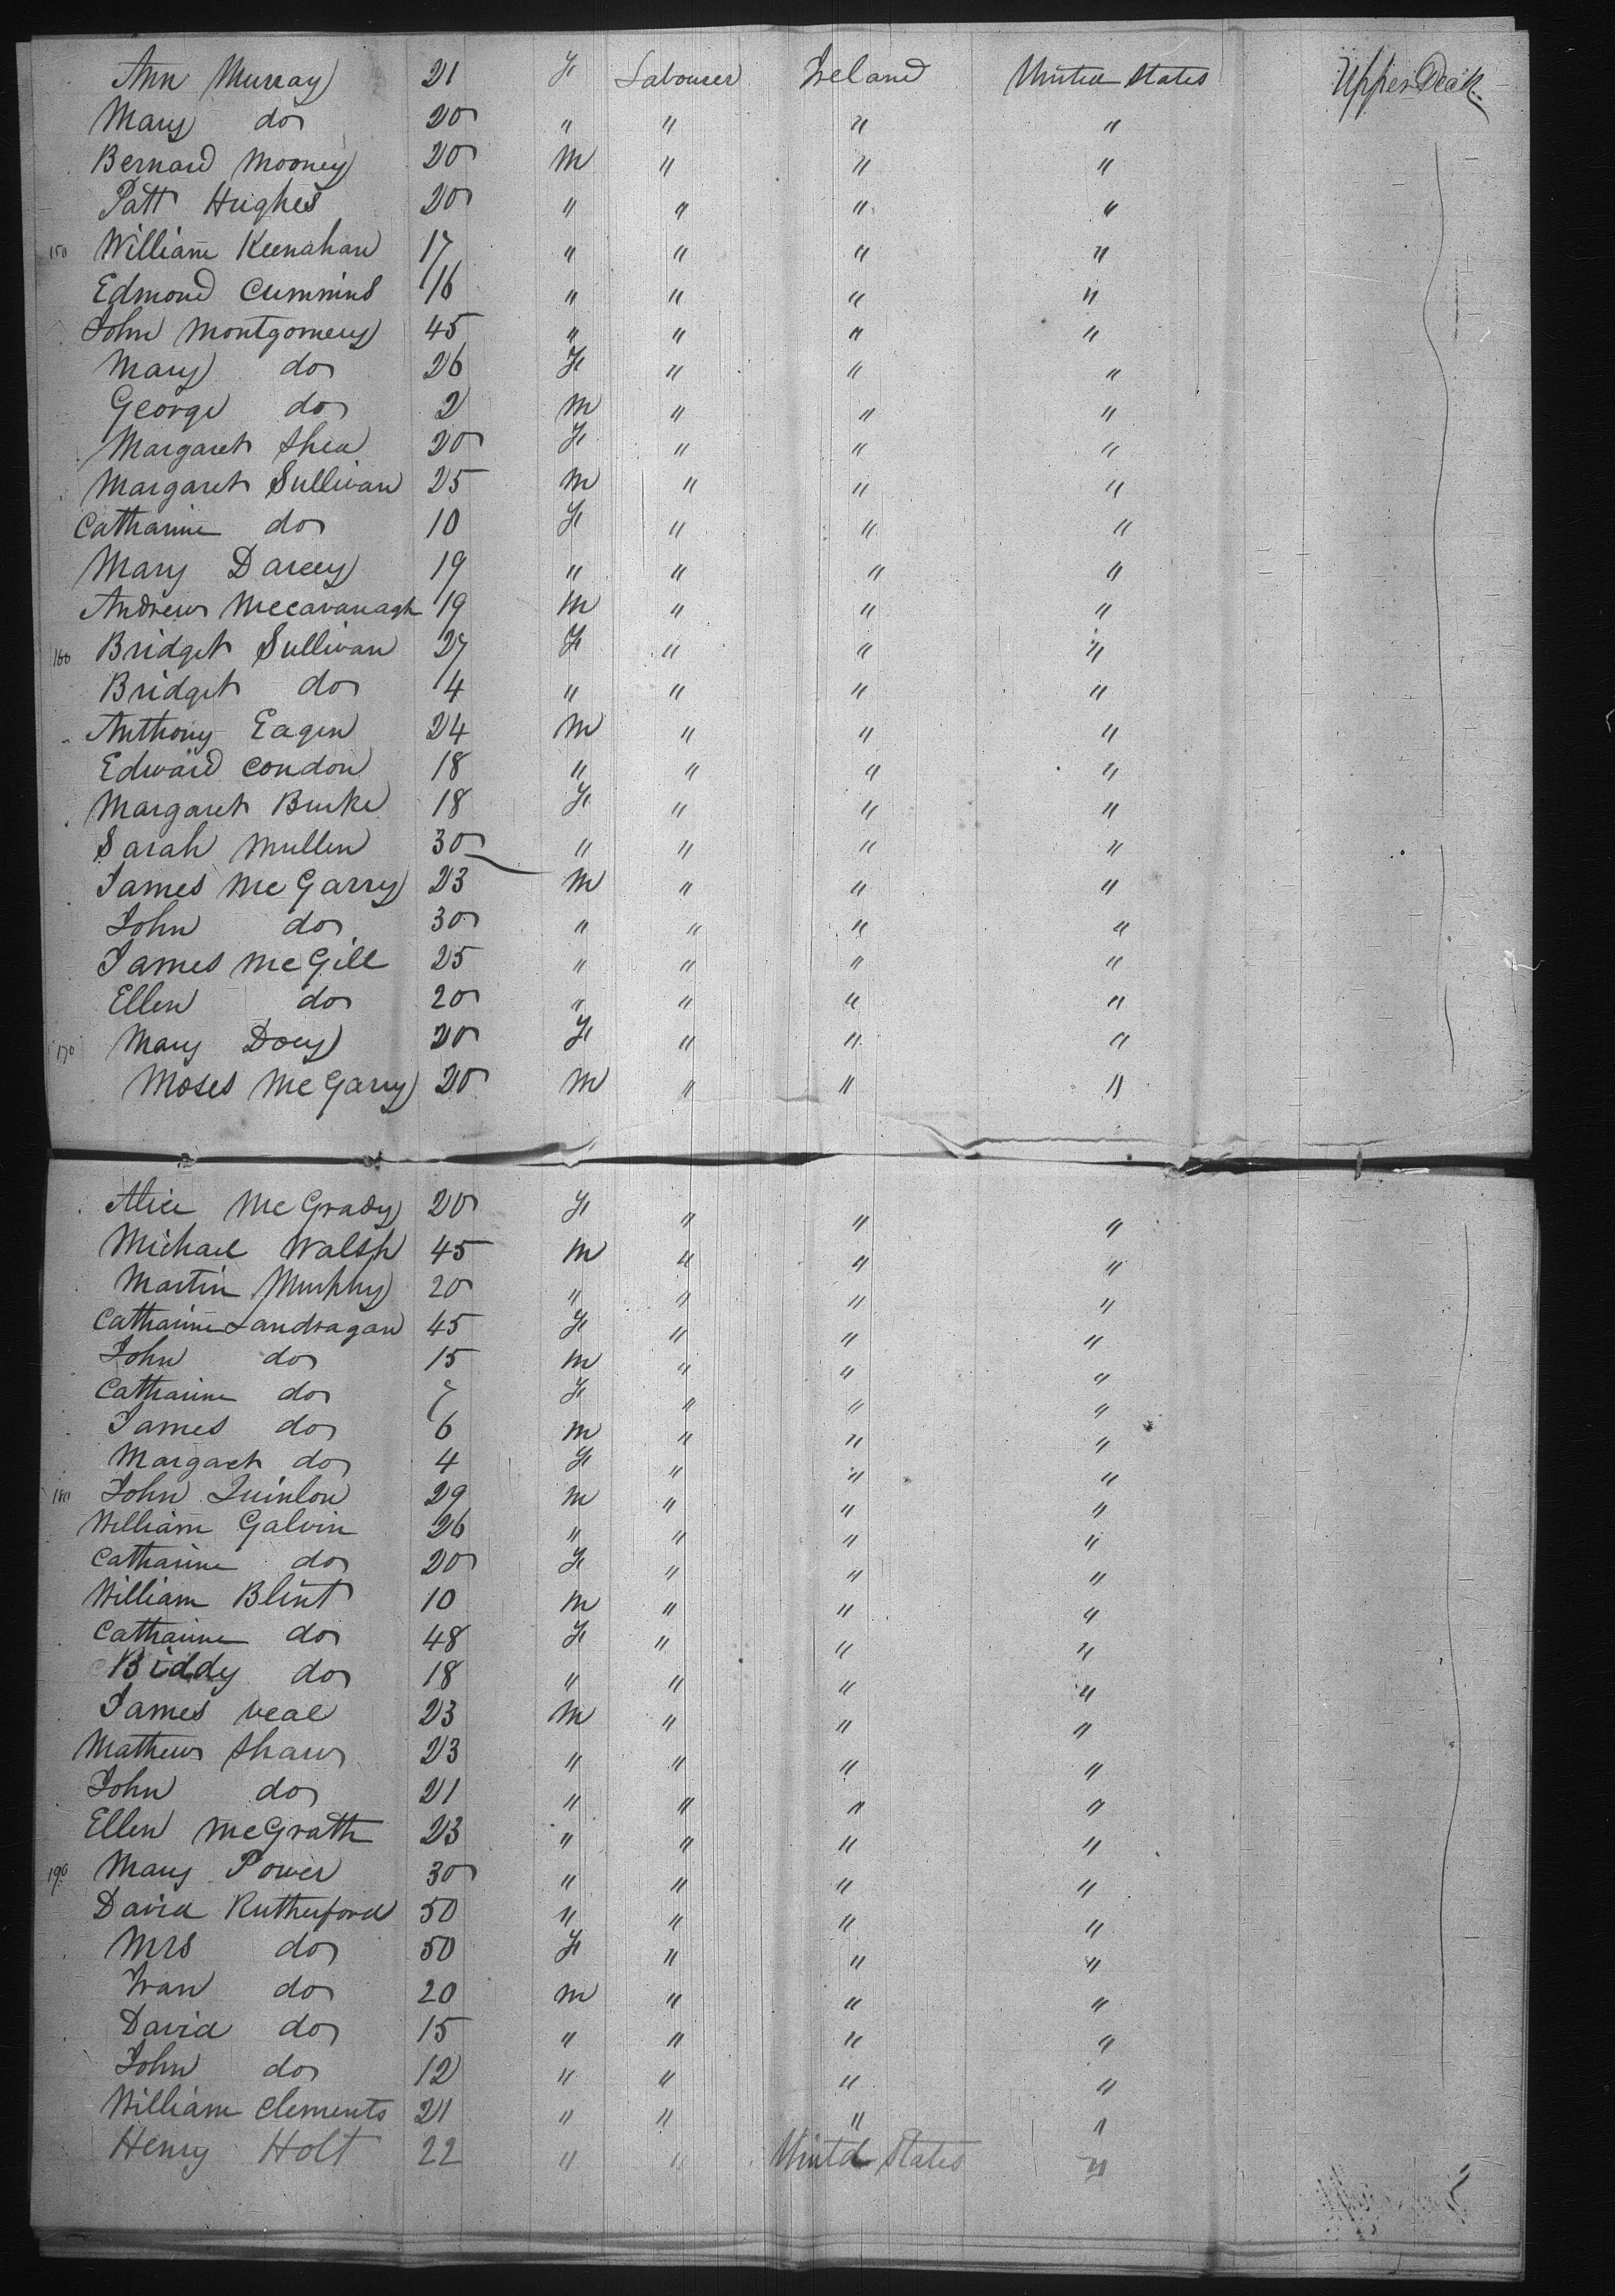 Ann Murray 21 F Labourer Ireland United States Upper Deck
Mary do 20 " " " "
Bernard Mooney 20 M " " "
Patt Hughes 20 " " " "
150 William Keenahan 17 " " " "
Edmond Cummins 16 " " " "
John Montgomery 45 " " " "
Mary do 26 F " " "
George do 2 M " " "
Margaret Shea 20 F " " "
Margaret Sullivan 25 M " " "
Catharine do 10 F " " "
Mary Darcey 19 " " " "
Andrew McCavanagh 19 M " " "
160 Bridget Sullivan 27 F " " "
Bridget do 4 " " " "
Anthony Eagen 24 M " " "
Edward Condon 18 " " " "
Margaret Burke 18 F " " "
Sarah Mullen 30 " " " "
James McGarry 23 M " " "
John do 30 " " " "
James McGill 25 " " " "
Ellen do 20 " " " "
170 Mary Doey 20 F " " "
Moses McGarry 20 M " " "
Alice McGrady 20 F " " "
Michael Walsh 45 M " " "
Martin Murphy 20 " " " "
Catharine Landragan 45 F " " "
John do 15 M " " "
Catharine do 7 F " " "
James do 6 M " " "
Margaret do 4 F " " "
180 John Quinlon 29 M " " "
William Galvin 26 " " " "
Catharine do 20 F " " "
William Blint 10 M " " "
Catharine do 48 F " " "
Biddy do 18 " " " "
James Veal 23 M " " "
Mathew Shaw 23 " " " "
John do 21 " " " "
Ellen McGrath 23 " " " "
190 Mary Power 30 " " " "
David Rutherford 50 " " " "
Mrs do 50 F " " "
Ivan do 20 M " " "
David do 15 " " " "
John do 12 " " " "
William Clements 21 " " " "
Henry Holt 22 " " Unitd States "